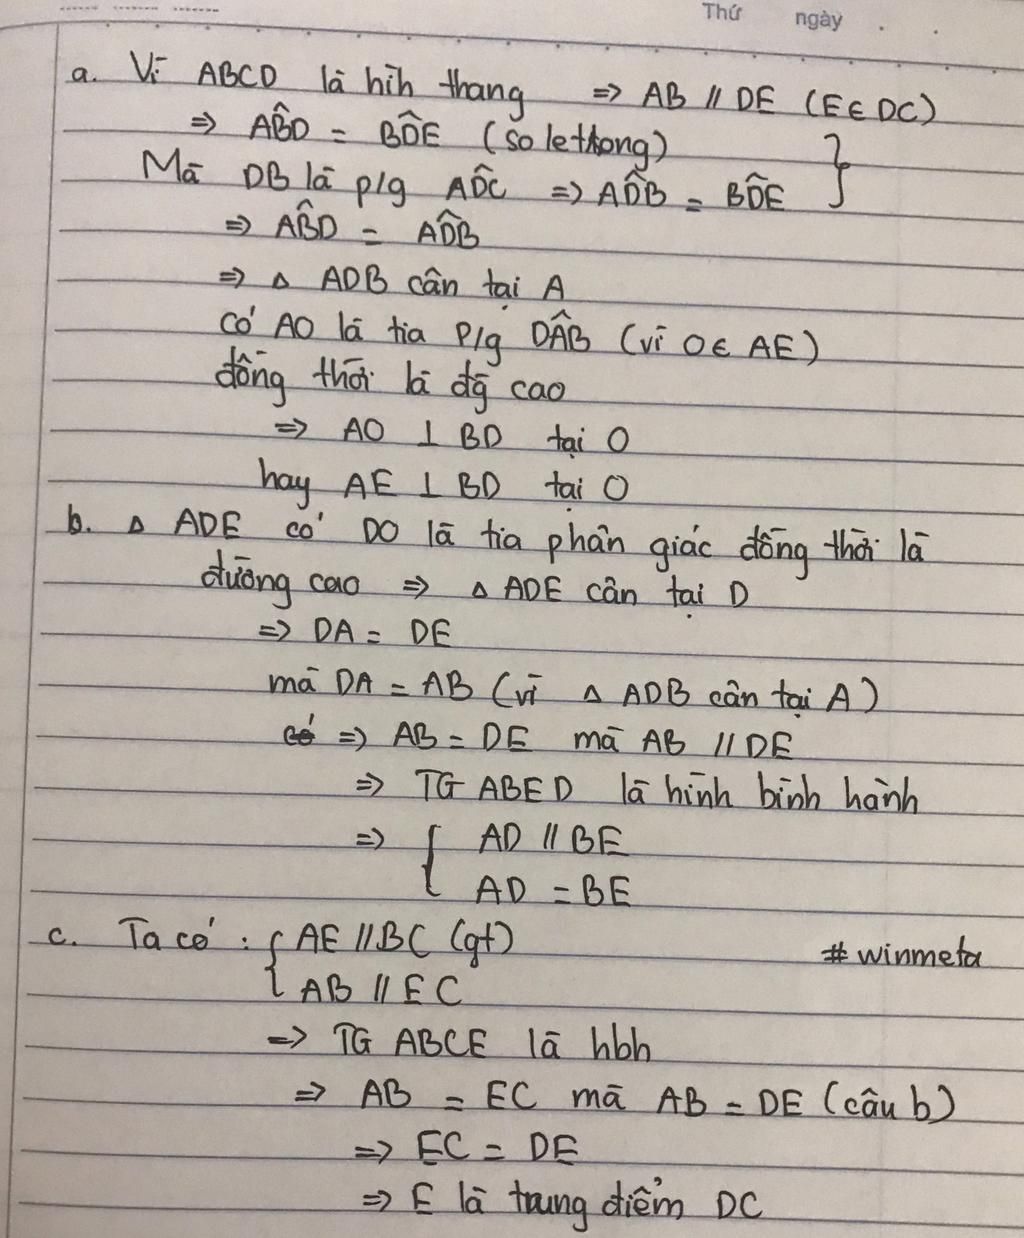 Thứ ngày
a. Vì ABCD là hìh thang => AB // DE (E∈DC)
=> AB̂D = BD̂E (so le trong)
Mà DB là p/g AD̂C => AD̂B = BD̂E
=> AB̂D = AD̂B
=> Δ ADB cân tại A
có AO là tia p/g DÂB (vì O∈ AE)
đồng thời là đg̃ cao
=> AO ⊥ BD tại O
hay AE ⊥ BD tại O
b. Δ ADE có DO là tia phân giác đồng thời là
đường cao => Δ ADE cân tại D
=> DA = DE
mà DA = AB (vì Δ ADB cân tại A)
=> AB = DE mà AB // DE
=> TG ABED là hình bình hành
=> { AD // BE
AD = BE
c. Ta có : { AE // BC (gt)
AB // EC
#winmeta
=> TG ABCE là hbh
=> AB = EC mà AB = DE (câu b)
=> EC = DE
=> E là trung điểm DC